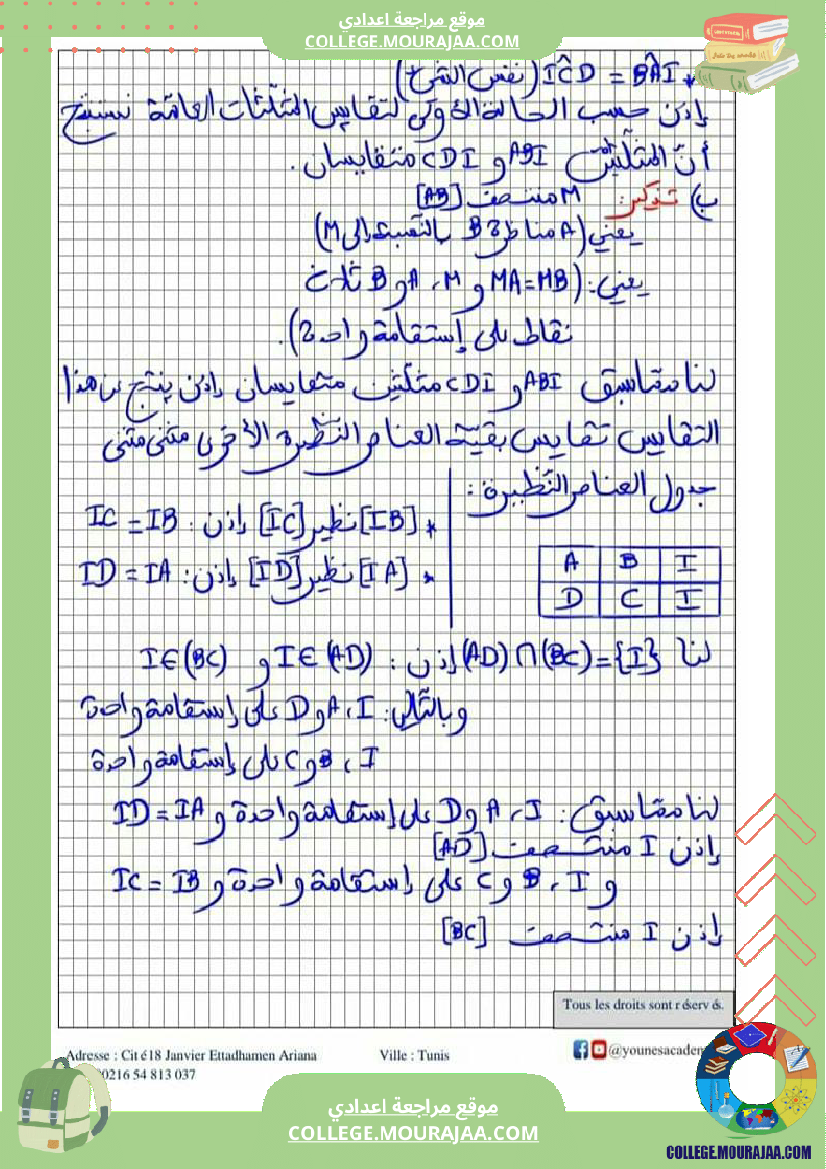 موقع مراجعة اعدادي
COLLEGE.MOURAJAA.COM
* BÂI = IĈD (نفس الشرح)
إذن حسب الحالة الأولى لتقايس المثلثات العامّة نستنتج
أنّ المثلّثين ABI و CDI متقايسان.
ب) تذكير: M منتصف [AB]
يعني (A مناظرة B بالنسبة إلى M)
يعني: (MA=MB و M ، A و B ثلاث
نقاط على إستقامة واحدة).
لنا ممّا سبق ABI و CDI مثلّثين متقايسان إذن ينتج عن هذا
التقايس تقايس بقيّة العناصر النّظيرة الأخرى مثنى مثنى
جدول العناصر النّظيرة:
A B I
D C I
* [IB] نظير [IC] إذن: IC = IB
* [IA] نظير [ID] إذن: ID = IA
لنا (AD)∩(BC)={I} إذن: I∈(AD) و I∈(BC)
وبالتّالي: I ، A و D على إستقامة واحدة
I ، B و C على إستقامة واحدة
لنا ممّا سبق: I ، A و D على إستقامة واحدة و ID = IA
إذن I منتصف [AD]
و I ، B و C على إستقامة واحدة و IC = IB
إذن I منتصف [BC]
Tous les droits sont réservés.
Adresse : Cité 18 Janvier Ettadhamen Ariana Ville : Tunis @younesacadem
0216 54 813 037
موقع مراجعة اعدادي
COLLEGE.MOURAJAA.COM
COLLEGE.MOURAJAA.COM